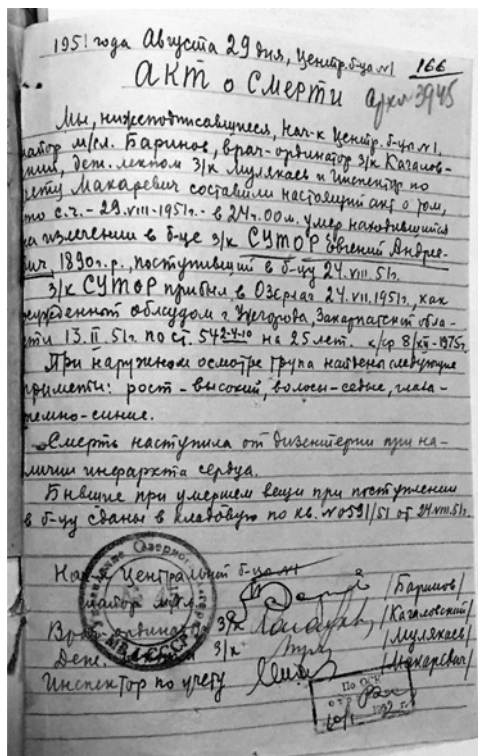 1951 года Августа 29 дня, Центр. б-ца №1
166
Акт о смерти
Арх № 3945
Мы, нижеподписавшиеся, Нач-к Центр. б-цы №1,
майор м/сл. Баринов, врач-ординатор з/к Кагалов-
ский, деж. лекпом з/к Мулякаев и Инспектор по
учету Макаревич составили настоящий акт о том,
что с.ч. - 29.VIII-1951г. - в 24ч.00м. умер находившийся
на излечении в б-це з/к СУТОР Евгений Андре-
вич, 1890г.р., поступивший в б-цу 24.VIII.51г.
З/к СУТОР прибыл в Озерлаг 24.VIII.1951г., как
осужденный облсудом г. Ужгорода, Закарпатской обла-
сти 13.II.51г. по ст. 54 2-4-10 на 25 лет. к/ср 8/XII-1975г.
При наружном осмотре трупа найдены следующие
приметы: рост - высокий, волосы - седые, глаза -
темно-синие.
Смерть наступила от дизентерии при на-
личии инфаркта сердца.
Бывшие при умершем вещи при поступлении
в б-цу сданы в кладовую по кв. №0591/51 от 24.VIII.51г.
Нач-к Центральной б-цы №1
майор м/сл. /Баринов/
Врач-ординатор з/к /Кагаловский/
Деж. лекпом з/к /Мулякаев/
Инспектор по учету /Макаревич/
Управление Озерного
МВД СССР
По ОСК
1952 г.